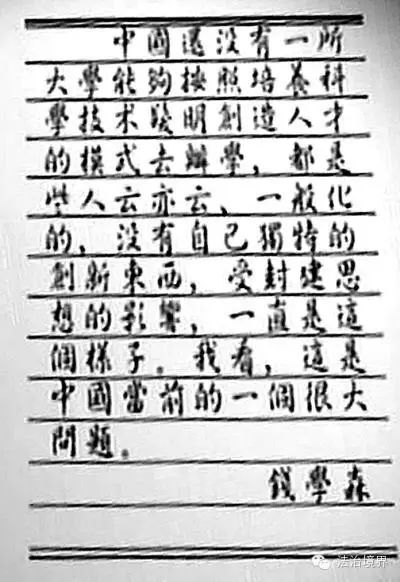 中國還没有一所
大學能夠按照培養科
學技术發明創造人才
的模式去辦學，都是
些人云亦云、一般化
的，没有自己獨特的
創新東西，受封建思
想的影響，一直是這
個樣子。我看，這是
中國當前的一個很大
問題。
錢學森
法治境界